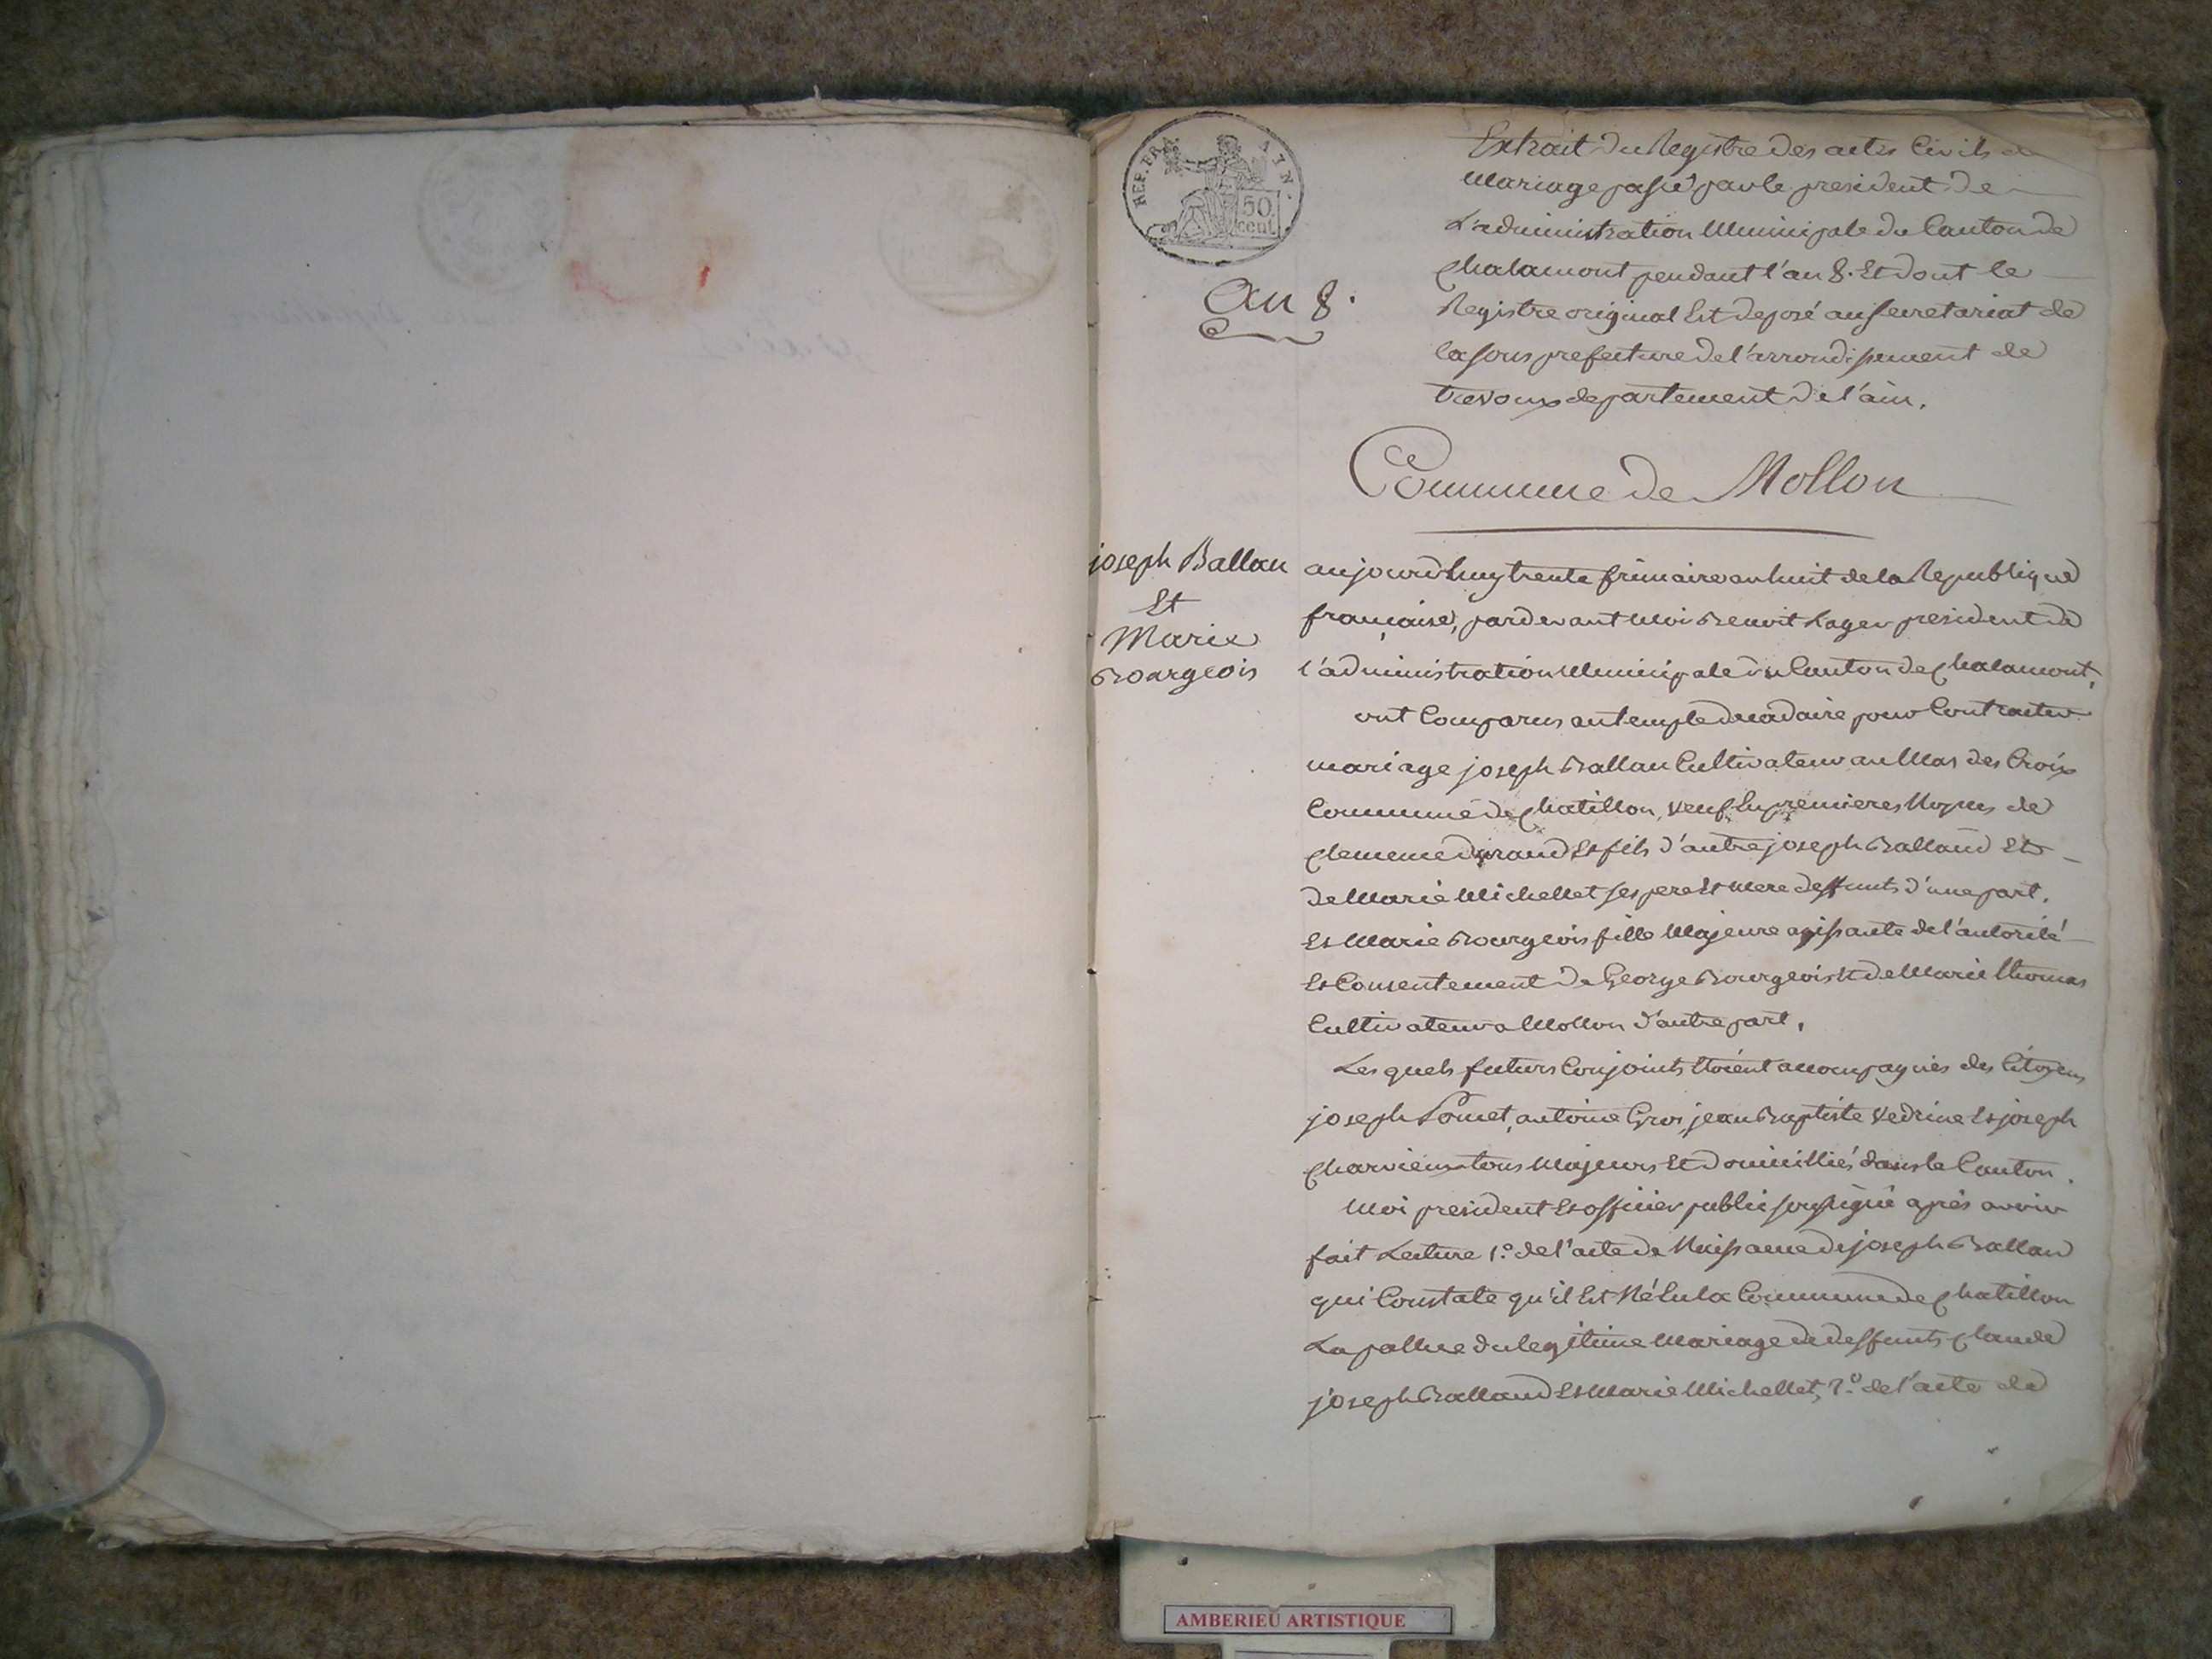 REP. FRA
AIN.
50
cent
Extrait du Registre des actes Civils de
Mariage passé par le president de
L'administration Municipale du Canton de
Chalamont pendant l'an 8. Et dont le
Registre original Est deposé au secretariat de
la sous prefecture de l'arrondissement de
trevoux departement de l'ain.
An 8.
Commune de Mollon
joseph Ballan
Et
Marie
Bourgeois
aujourd'huy trente frimaire an huit de la Republique
française, pardevant Moi Benoit Lager president de
l'administration Municipale du Canton de Chalamont,
ont Comparus au temple decadaire pour Contracter
mariage joseph Ballan Cultivateur au Mas des Croix
Commune de Chatillon, veuf En premieres Noces de
Clemence durand Et fils d'autre joseph Balland Et
de Marie Michellet ses pere Et Mere deffunts d'une part.
Et Marie Bourgeois fille Majeure agissante de l'autorité
Et Consentement de George Bourgeois Et de Marie thomas
Cultivateur a Mollon d'autre part,
Les quels futurs Conjoints Etoient accompagnés des Citoyens
joseph antoine Gros, jean Baptiste Vedrine Et joseph
Charvieux tous Majeurs Et domicilliés dans le Canton.
Moi president Et officier public soussigné aprés avoir
fait Lecture 1.° de l'acte de Naissance de joseph Balland
qui Constate qu'il Est Né En la Commune de Chatillon
La pallue du legitime Mariage de deffunts Claude
joseph Balland Et Marie Michellet, 2.° de l'acte de
AMBERIEU ARTISTIQUE